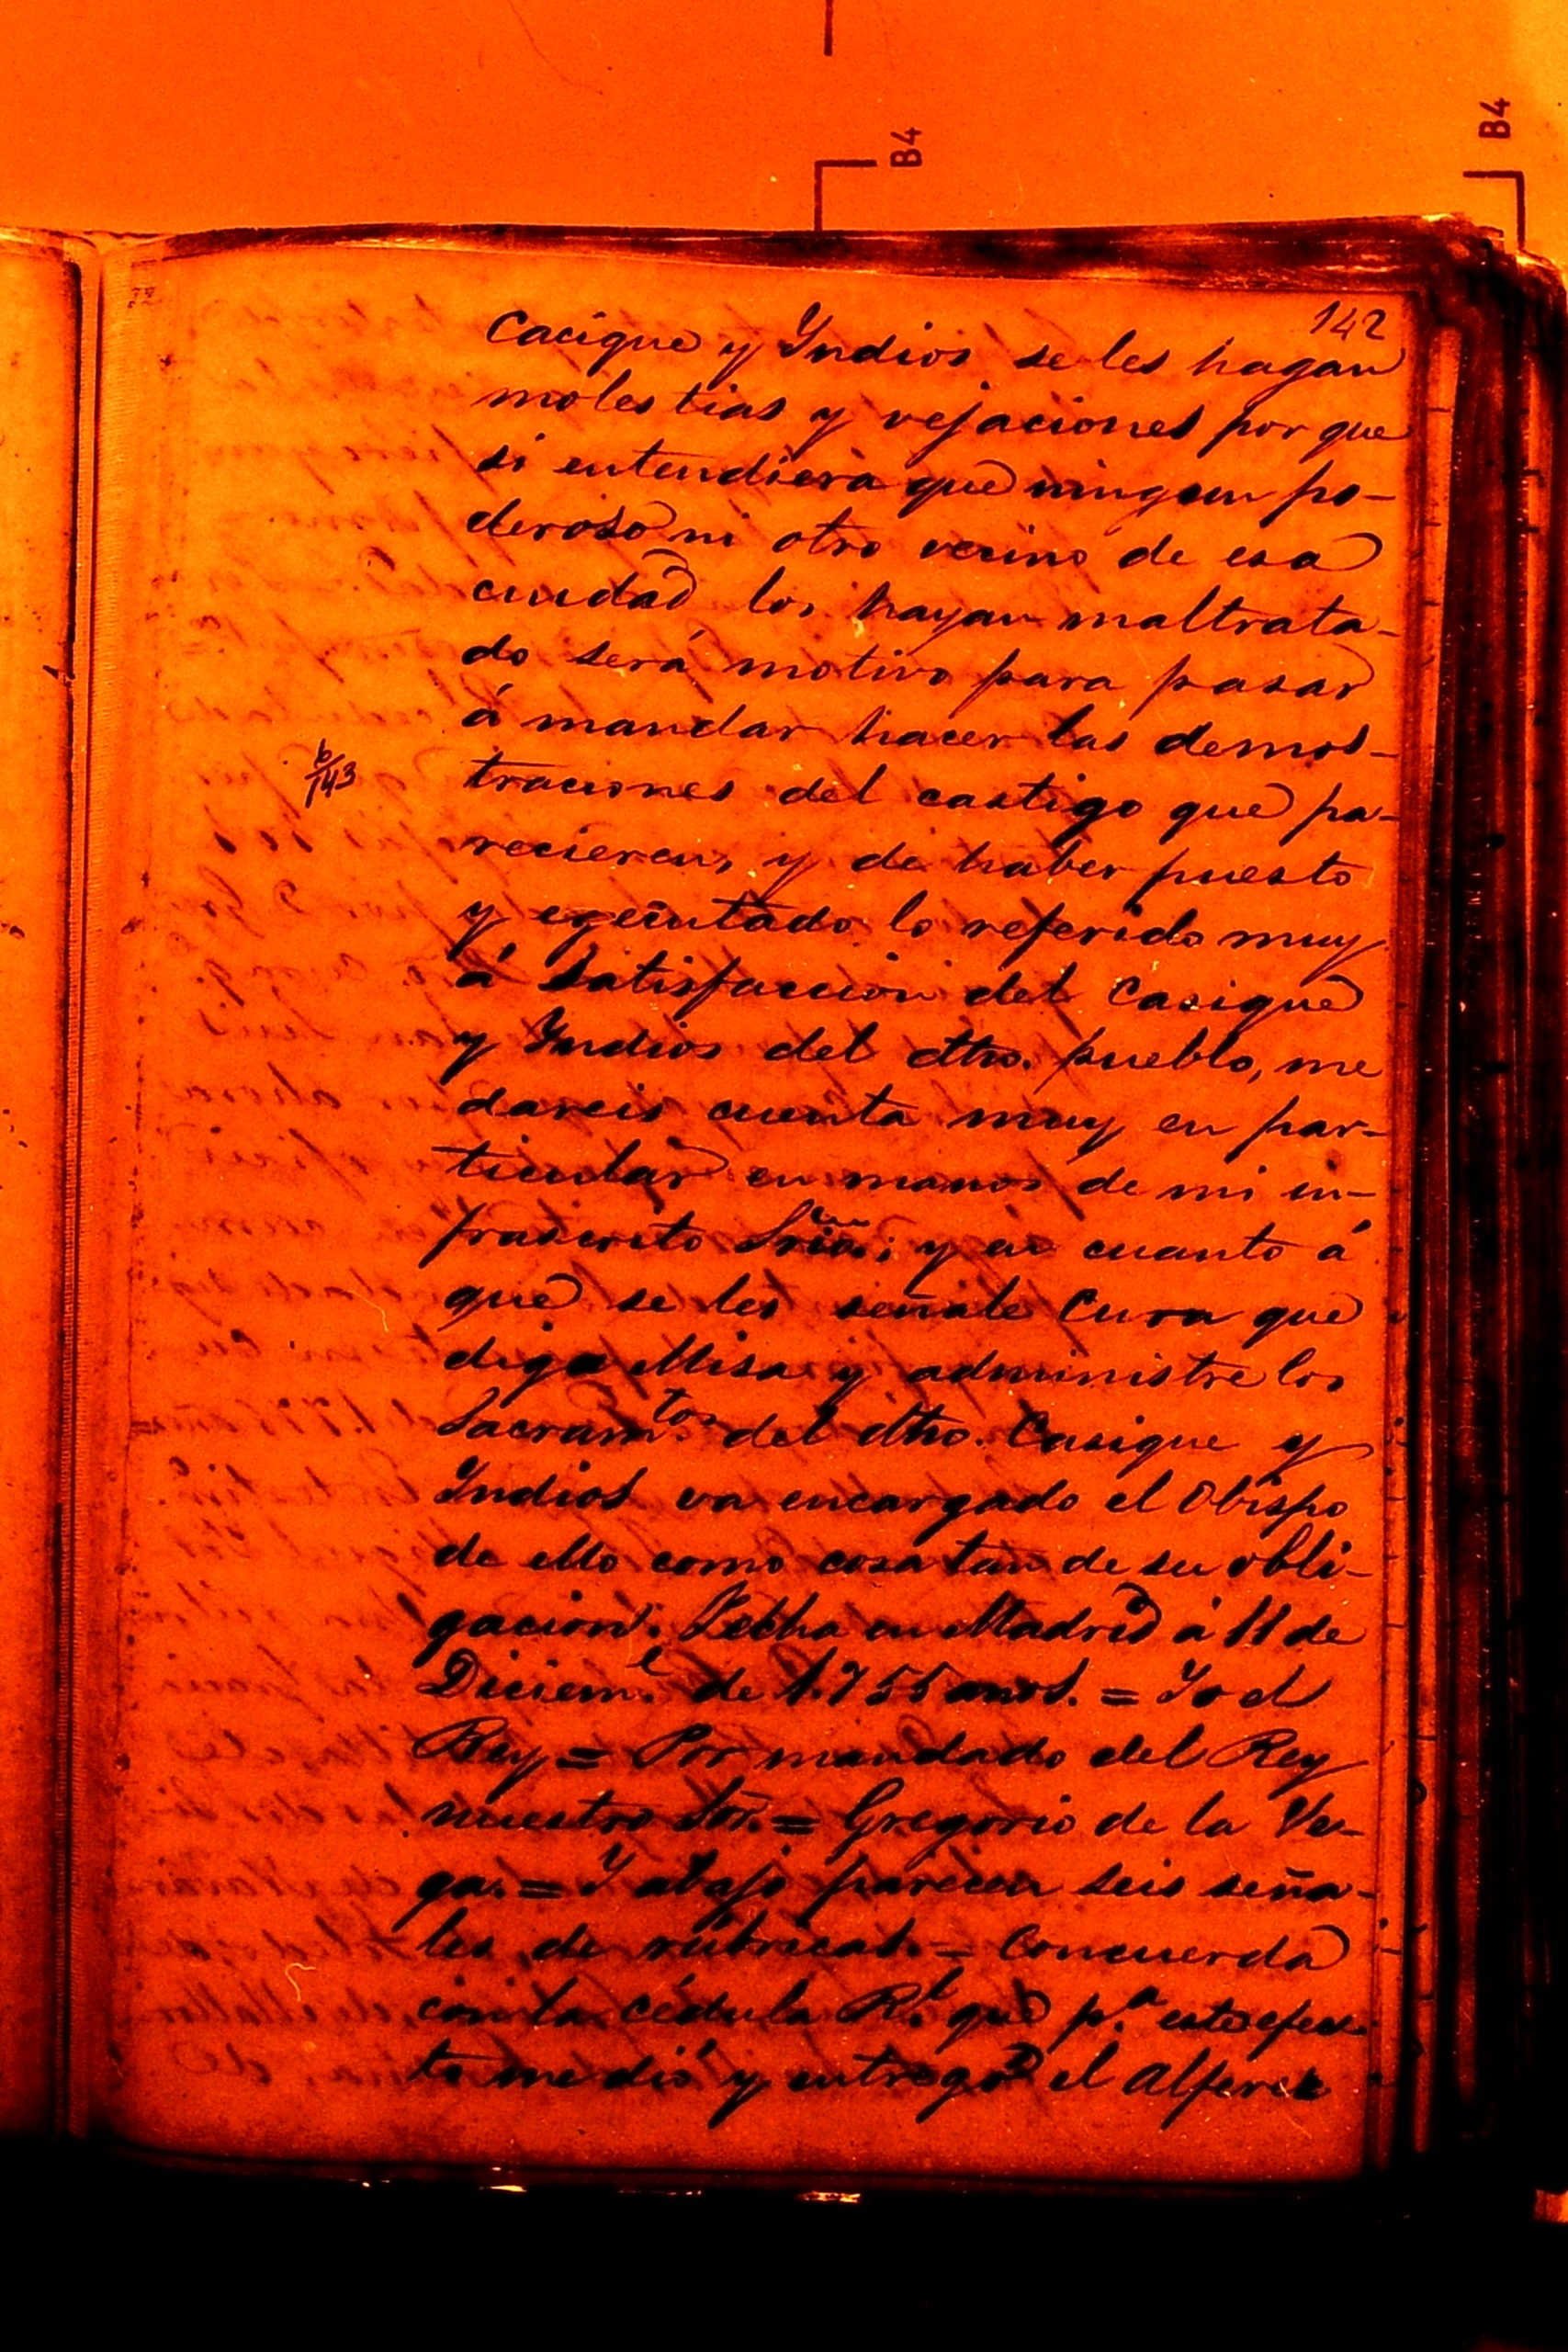 B4
B4
142
Cacique y Yndios se les hagan
molestias y vejaciones por que
si entendiera que ningun po-
deroso ni otro vecino de esa
ciudad los hayan maltrata-
do será motivo para pasar
á mandar hacer las demos-
traciones del castigo que pa-
recieren, y de haber puesto
y egecutado lo referido muy
á satisfaccion del Casique
y Yndios del dho. pueblo, me
dareis cuenta muy en par-
ticular en manos de mi in-
frascrito Sria; y en cuanto á
que se les señale Cura que
diga Misa y administre los
Sacram.tos del dho. Casique y
Yndios va encargado el Obispo
de ello como cosa tan de su obli-
gacion. Fecha en Madrid á 11 de
Diciem.e de 1.755 anos. = Yo el
Rey = Por mandado del Rey
nuestro Sor. = Gregorio de la Ve-
ga. = Y abajo parecen seis seña-
les de rúbricas. = Concuerda
con la cédula R.l que p.a este efec-
to me dió y entregó el Alferez
b/143